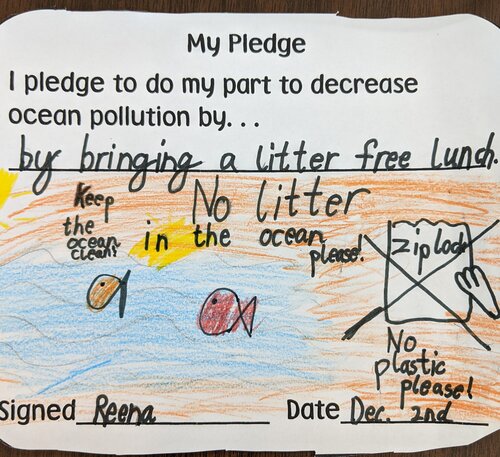 My Pledge
I pledge to do my part to decrease
ocean pollution by. . .
by bringing a litter free lunch.
Keep
the
ocean
clean!
No litter
in the ocean
please!
Ziplock
No
plastic
please!
Signed Reena
Date Dec. 2nd